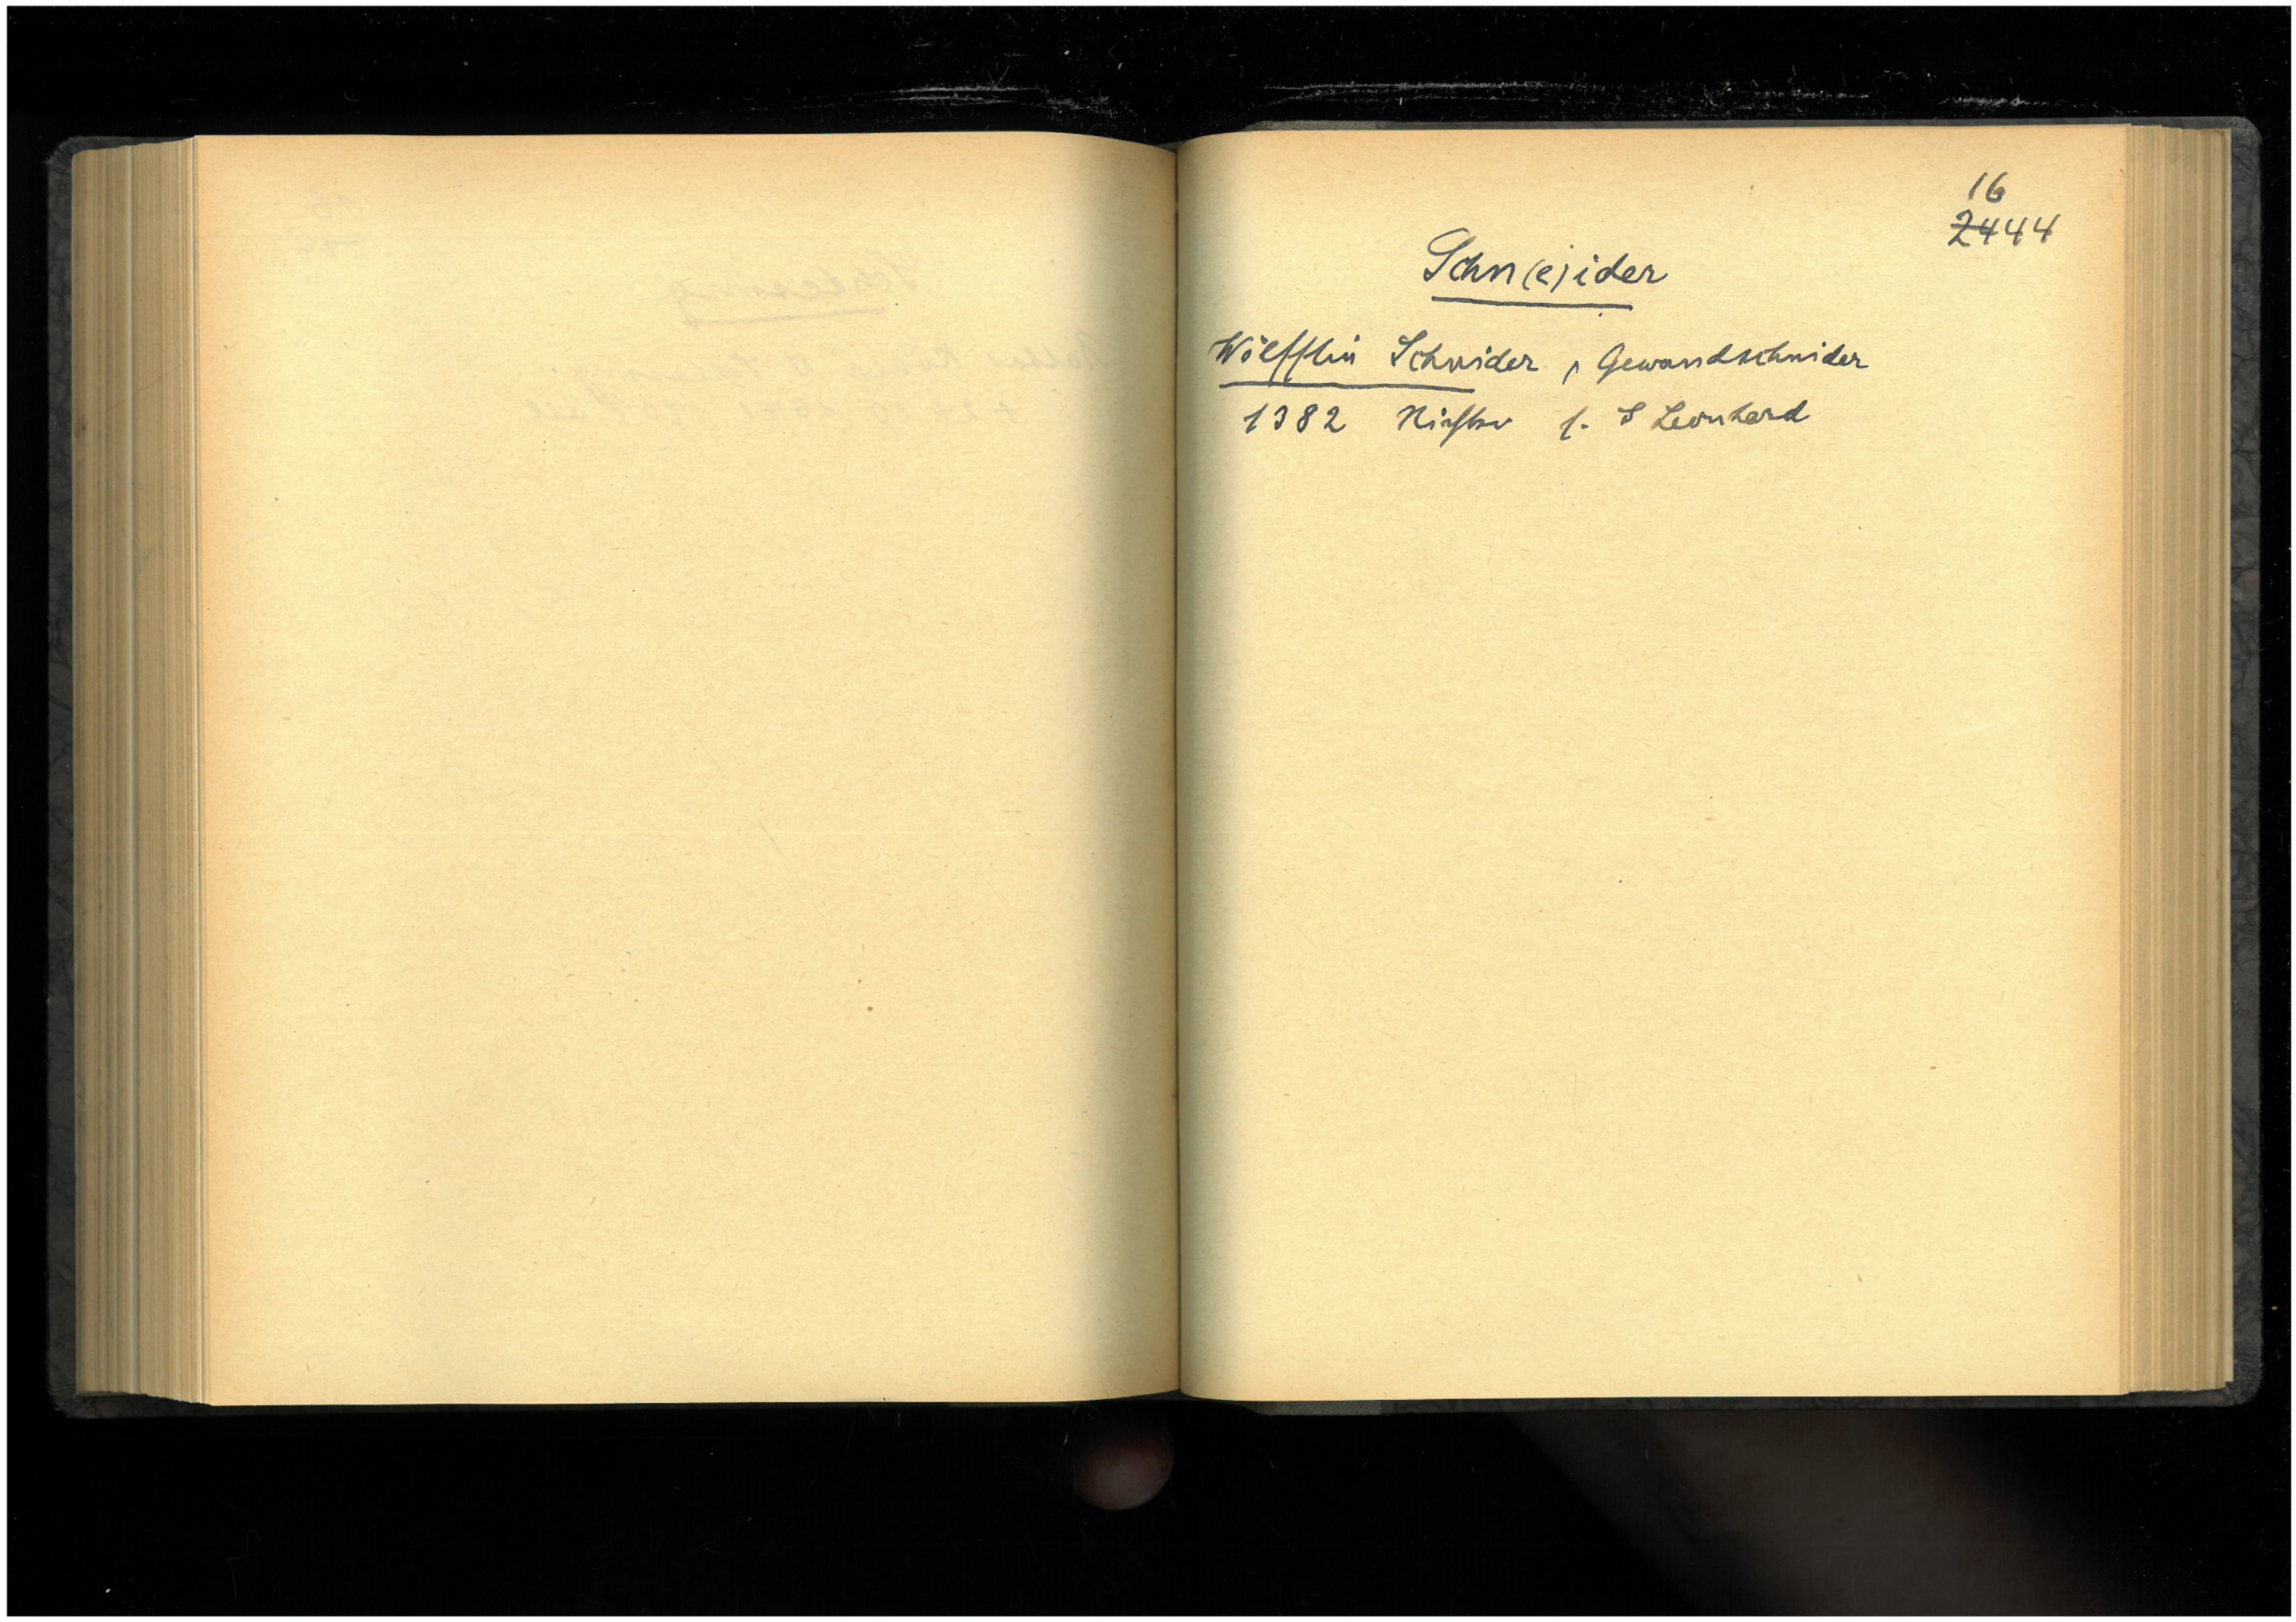 16
2444
Schn(e)ider
Wölfflin Schnider, Gewandschnider
1382 Richter f. S Leonhard